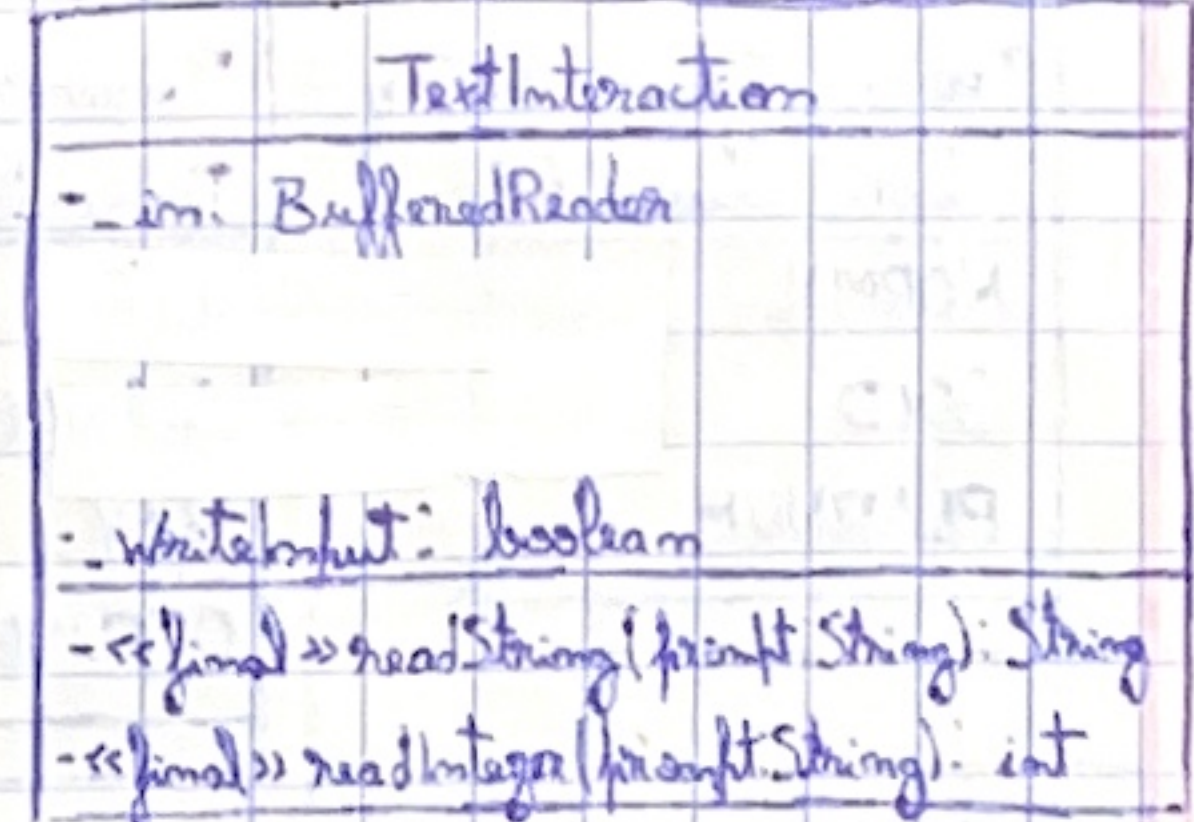 TextInteraction
- _in: BufferedReader
- _writeInput: boolean
- <<final>> readString(prompt:String): String
- <<final>> readInteger(prompt:String): int